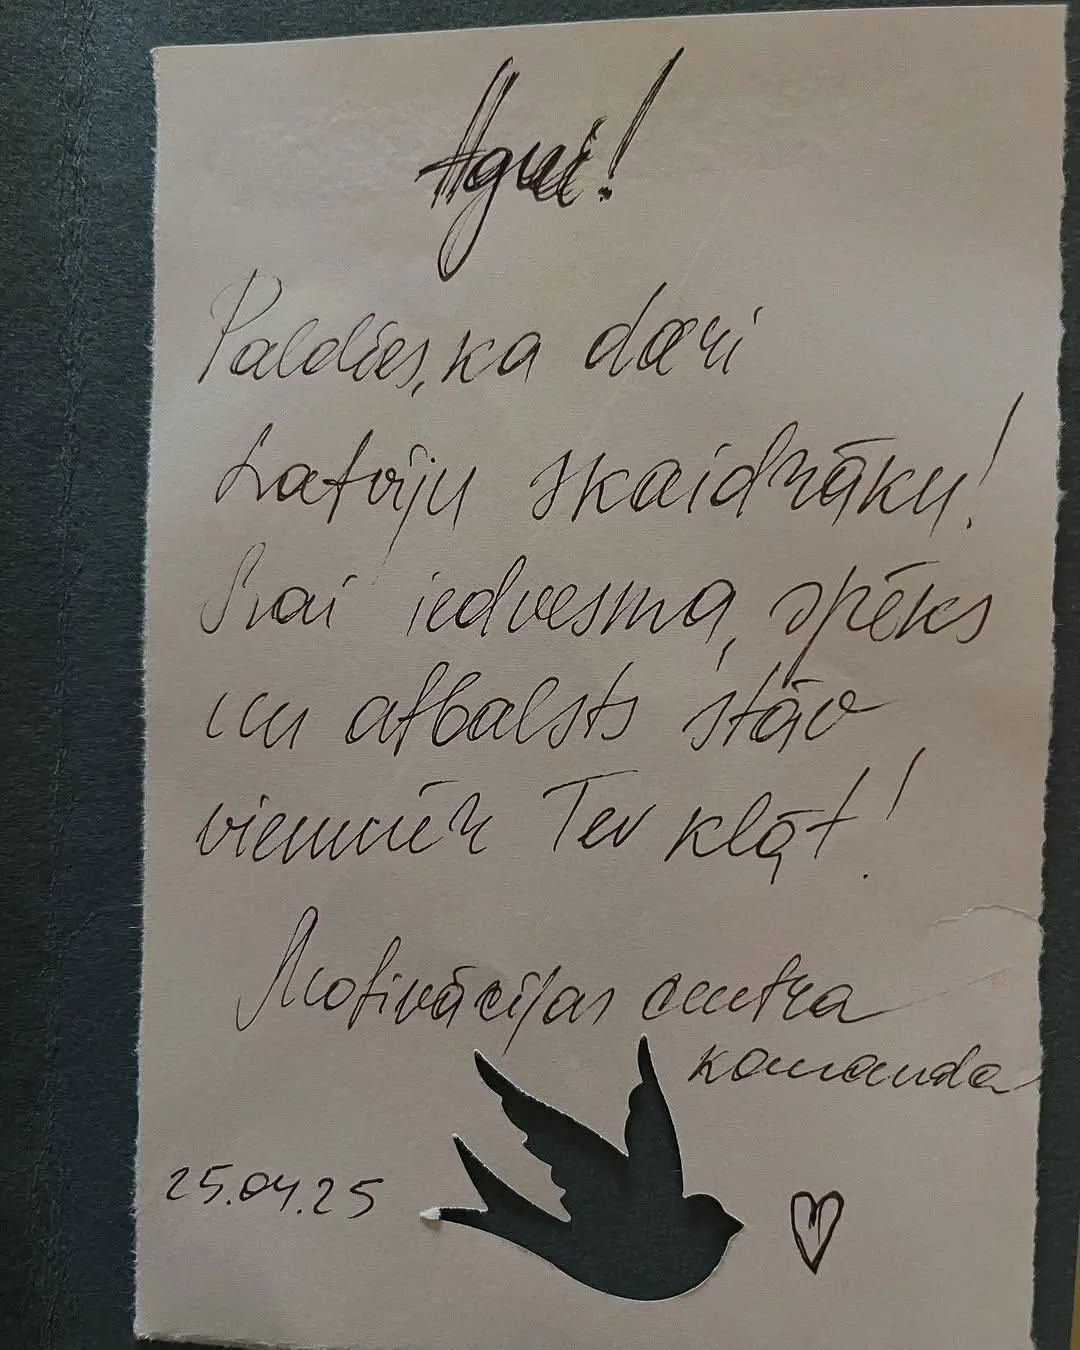 Paldies, ka dari
Latviju skaidrāku!
Lai iedvesma, spēks
un atbalsts stāv
vienmēr Tev klāt!
Motivācijas centra
komanda
25.04.25